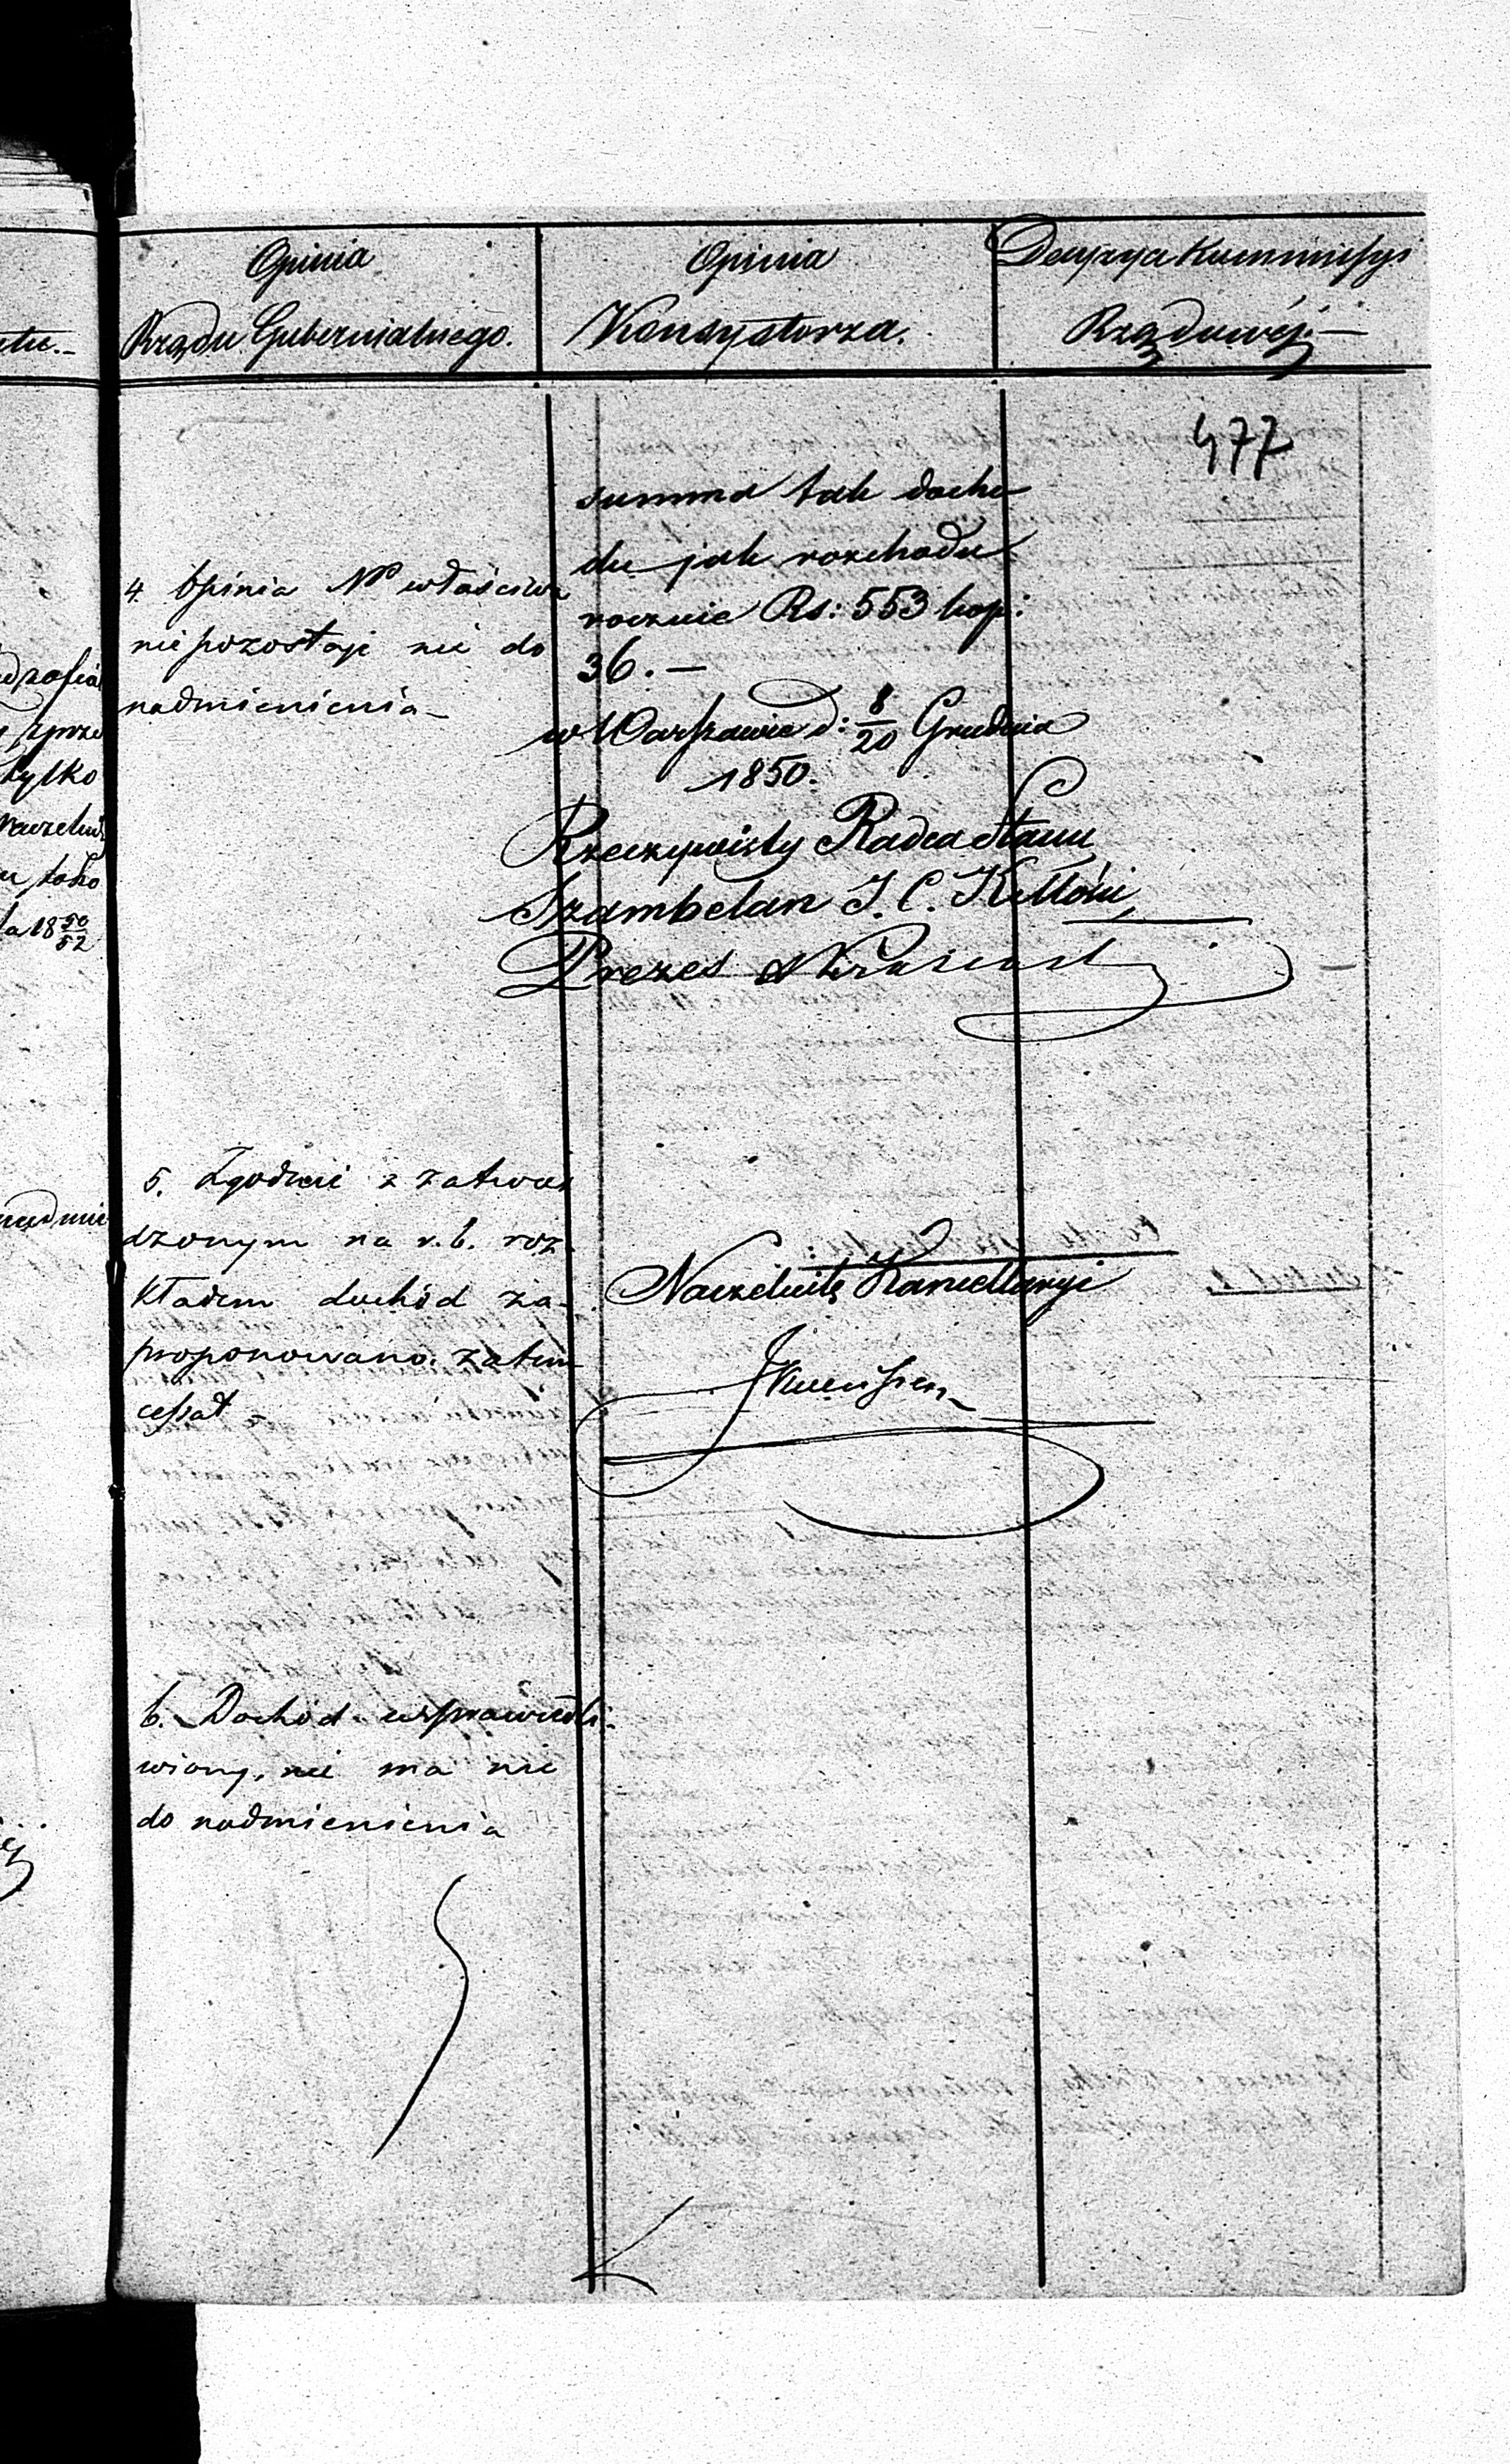 Opinia
Rządu Gubernialnego.
Opinia
Konsystorza.
Decyzya Kommissyi
Rządowéj.—
477
4. Opinia NP właściwa
nie pozostaje nic do
nadmienienia—
5. Zgodnie z zatwier
dzonym na r.b. roz
kładem dochód za-
proponowano. zatem
cessat
6. Dochód usprawiedli-
wiony, nie ma nic
do nadmienienia
summa tak docho
du jak rozchodu
rocznie Rs: 553 kop:
36.—
w Warszawie d: 8/20 Grudnia
1850.
Rzeczywisty Radca Stanu
Szambelan J. C. K. Mości
Prezes
Naczelnik Kancellaryi
tylko
la 18 50/52